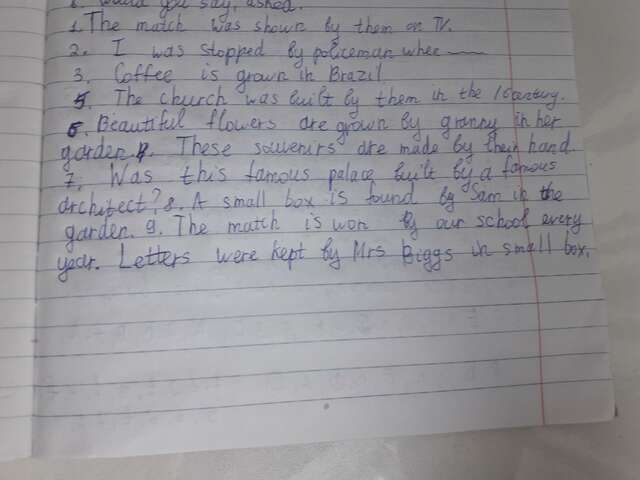 would you say, asked.
1. The match was shown by them on TV.
2. I was stopped by policeman whee
3. Coffee is grown in Brazil
5. The church was built by them in the 16entury.
6. Beautiful flowers are grown by granny in her
garden. 4. These souvenirs are made by their hand.
7. Was this famous palace built by a famous
architect? 8. A small box is found by Sam in the
garden. 9. The match is won by our school every
year. Letters were kept by Mrs Biggs in small box.